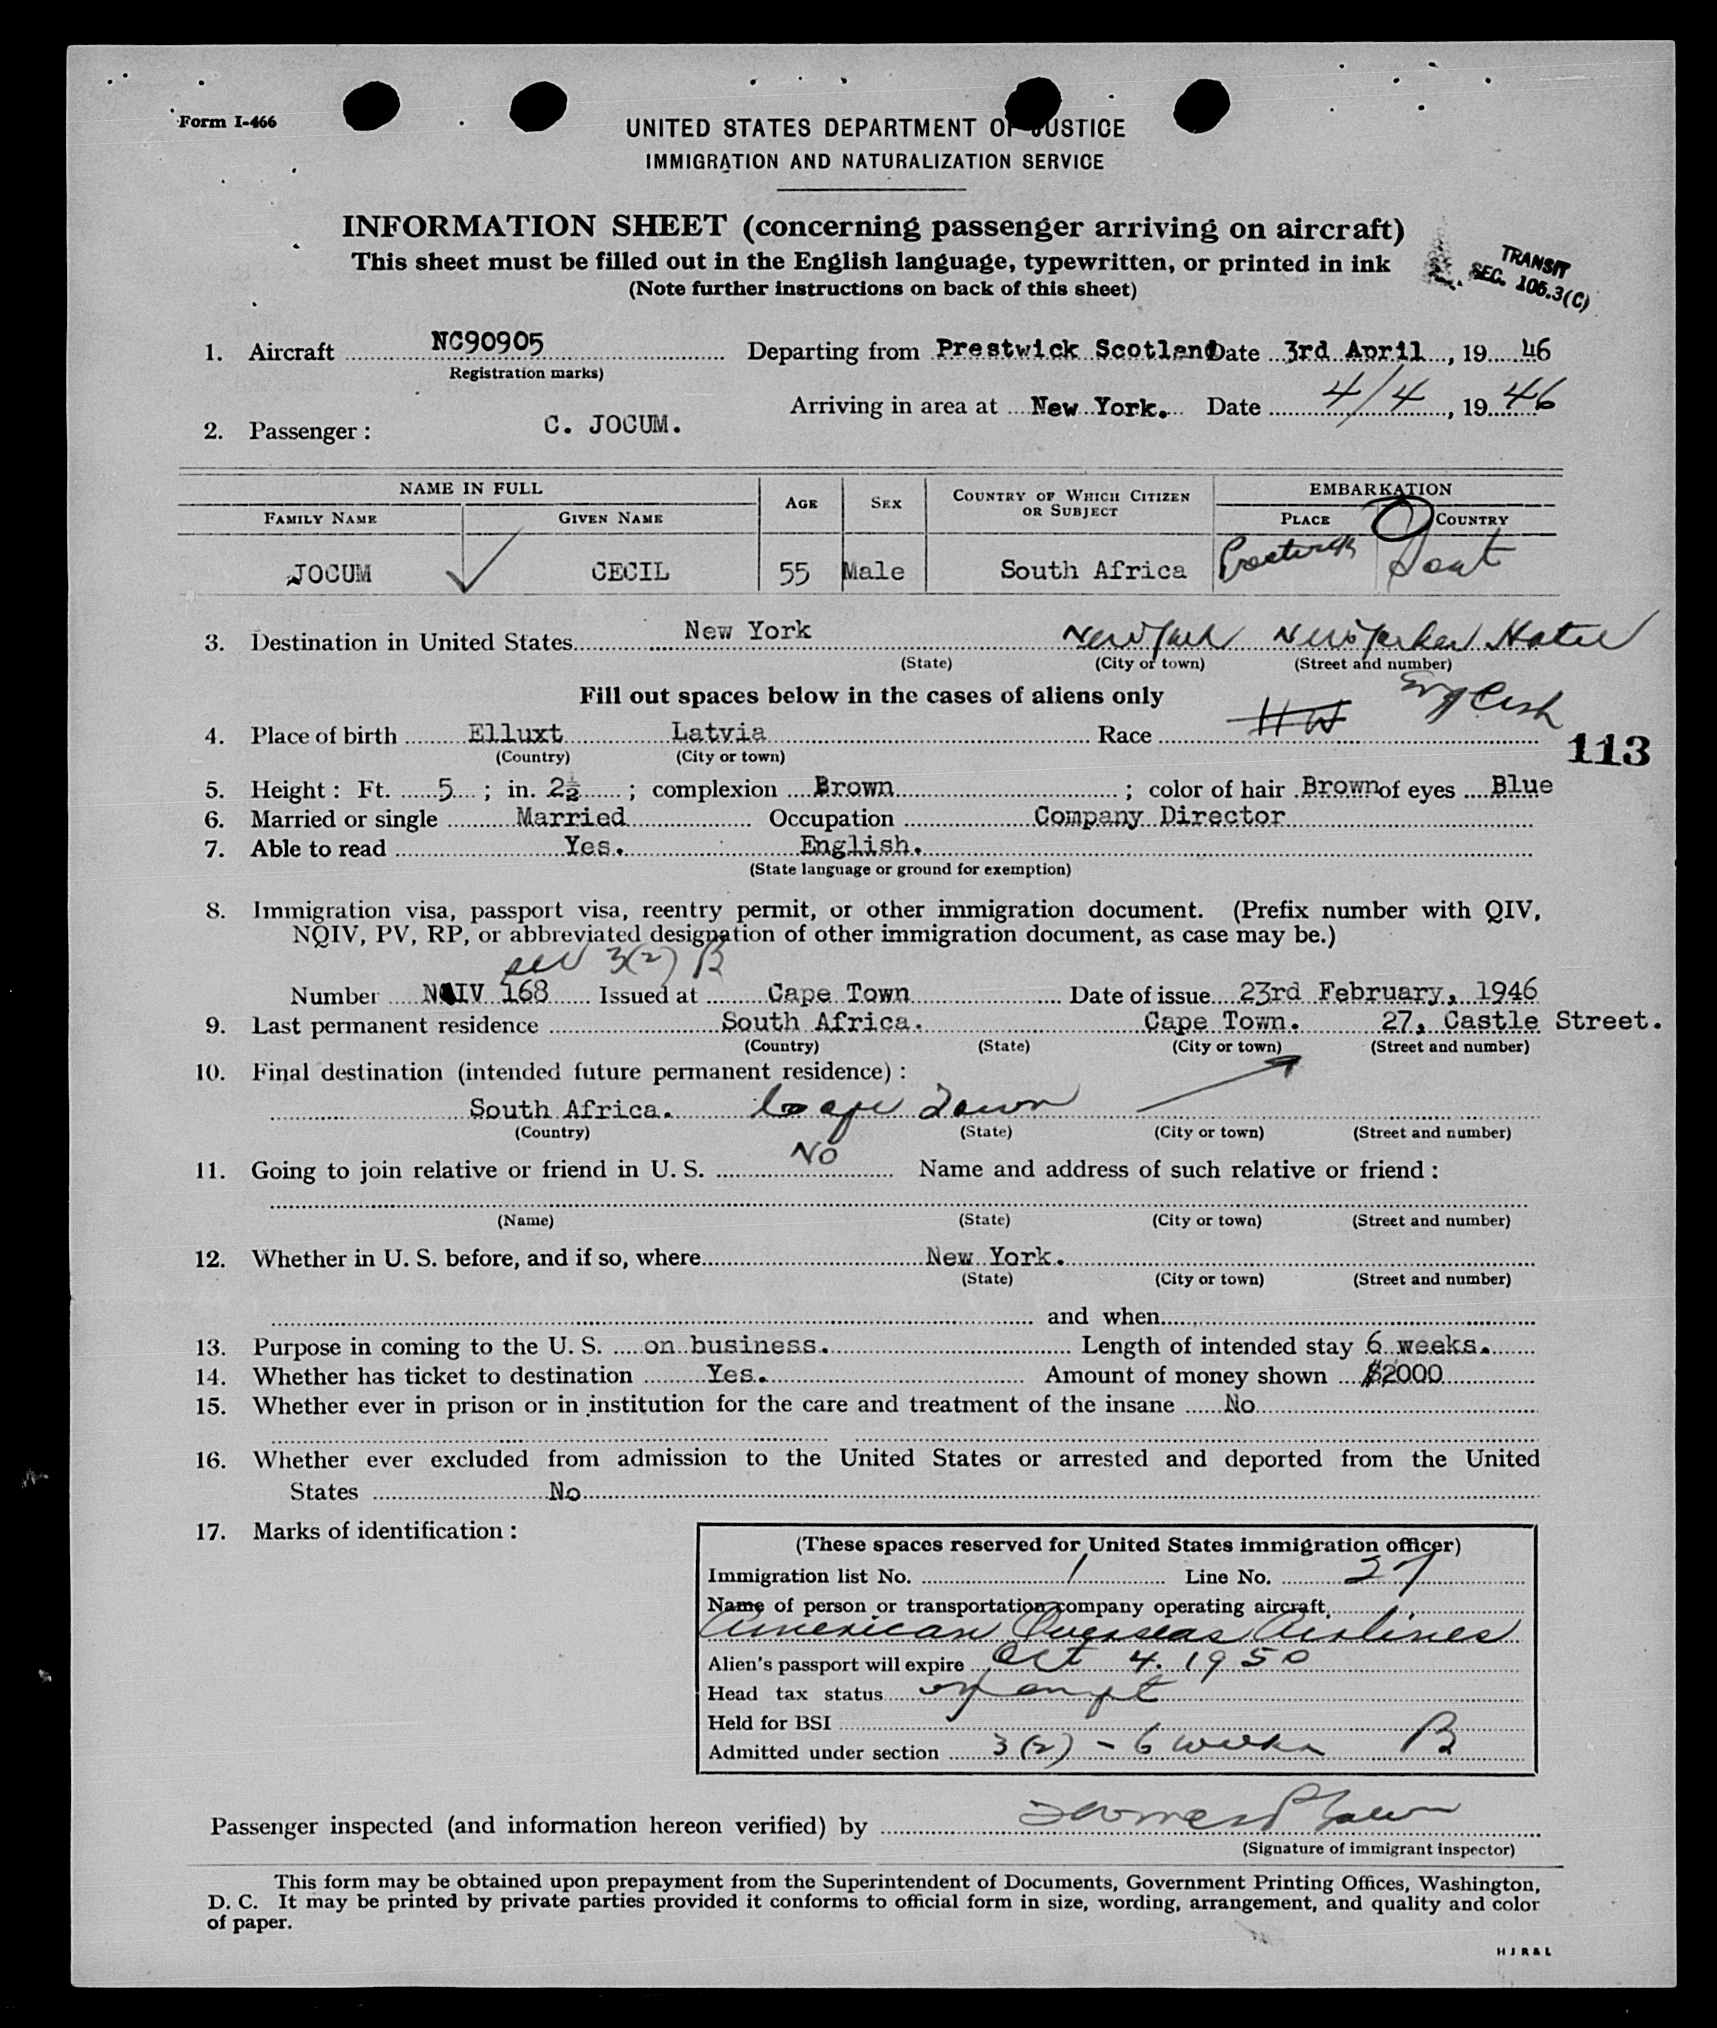 Form I-466
UNITED STATES DEPARTMENT OF JUSTICE
IMMIGRATION AND NATURALIZATION SERVICE
INFORMATION SHEET (concerning passenger arriving on aircraft)
This sheet must be filled out in the English language, typewritten, or printed in ink
(Note further instructions on back of this sheet)
TRANSIT
SEC. 105.3(C)
1. Aircraft NC90905 Departing from Prestwick Scotland Date 3rd April, 19 46
(Registration marks)
Arriving in area at New York. Date 4/4, 19 46
2. Passenger: C. JOCUM.
NAME IN FULL AGE SEX COUNTRY OF WHICH CITIZEN OR SUBJECT EMBARKATION
FAMILY NAME GIVEN NAME PLACE COUNTRY
JOCUM CECIL 55 Male South Africa Prestwick Scot
3. Destination in United States New York New York New Yorker Hotel
(State) (City or town) (Street and number)
Fill out spaces below in the cases of aliens only
English
4. Place of birth Elluxt Latvia Race HW
(Country) (City or town)
113
5. Height: Ft. 5; in. 2½; complexion Brown; color of hair Brown of eyes Blue
6. Married or single Married Occupation Company Director
7. Able to read Yes. English.
(State language or ground for exemption)
8. Immigration visa, passport visa, reentry permit, or other immigration document. (Prefix number with QIV,
NQIV, PV, RP, or abbreviated designation of other immigration document, as case may be.)
sec 3(2) B
Number NQIV 168 Issued at Cape Town Date of issue 23rd February, 1946
9. Last permanent residence South Africa. Cape Town. 27, Castle Street.
(Country) (State) (City or town) (Street and number)
10. Final destination (intended future permanent residence):
South Africa. Cape Town
(Country) (State) (City or town) (Street and number)
11. Going to join relative or friend in U. S. No Name and address of such relative or friend:
(Name) (State) (City or town) (Street and number)
12. Whether in U. S. before, and if so, where New York.
(State) (City or town) (Street and number)
and when
13. Purpose in coming to the U. S. on business. Length of intended stay 6 weeks.
14. Whether has ticket to destination Yes. Amount of money shown $2000
15. Whether ever in prison or in institution for the care and treatment of the insane No
16. Whether ever excluded from admission to the United States or arrested and deported from the United
States No
17. Marks of identification:
(These spaces reserved for United States immigration officer)
Immigration list No. 1 Line No. 27
Name of person or transportation company operating aircraft,
American Overseas Airlines
Alien's passport will expire Oct 4. 1950
Head tax status exempt
Held for BSI
Admitted under section 3(2) - 6 weeks B
Passenger inspected (and information hereon verified) by
(Signature of immigrant inspector)
This form may be obtained upon prepayment from the Superintendent of Documents, Government Printing Offices, Washington,
D. C. It may be printed by private parties provided it conforms to official form in size, wording, arrangement, and quality and color
of paper.
H J R & L